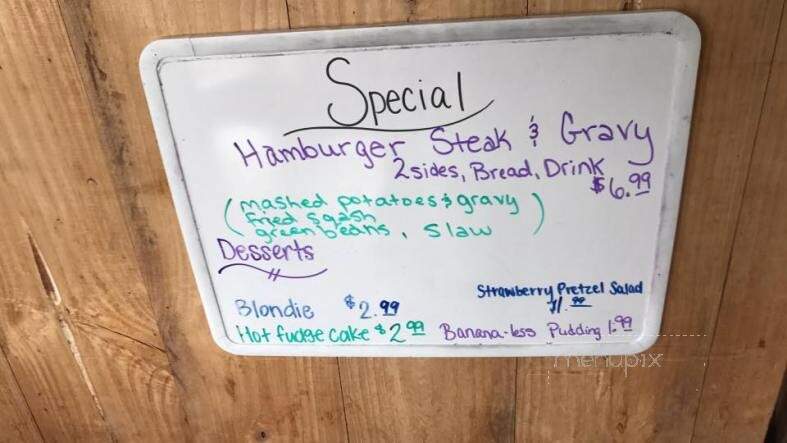 Special
Hamburger Steak & Gravy
2 sides, Bread, Drink
$6.99
(mashed potatoes & gravy
fried sqash
green beans, slaw)
Desserts
Strawberry Pretzel Salad
$1.99
Blondie $2.99
Hot fudge cake $2.99
Banana-less Pudding 1.99
menupix